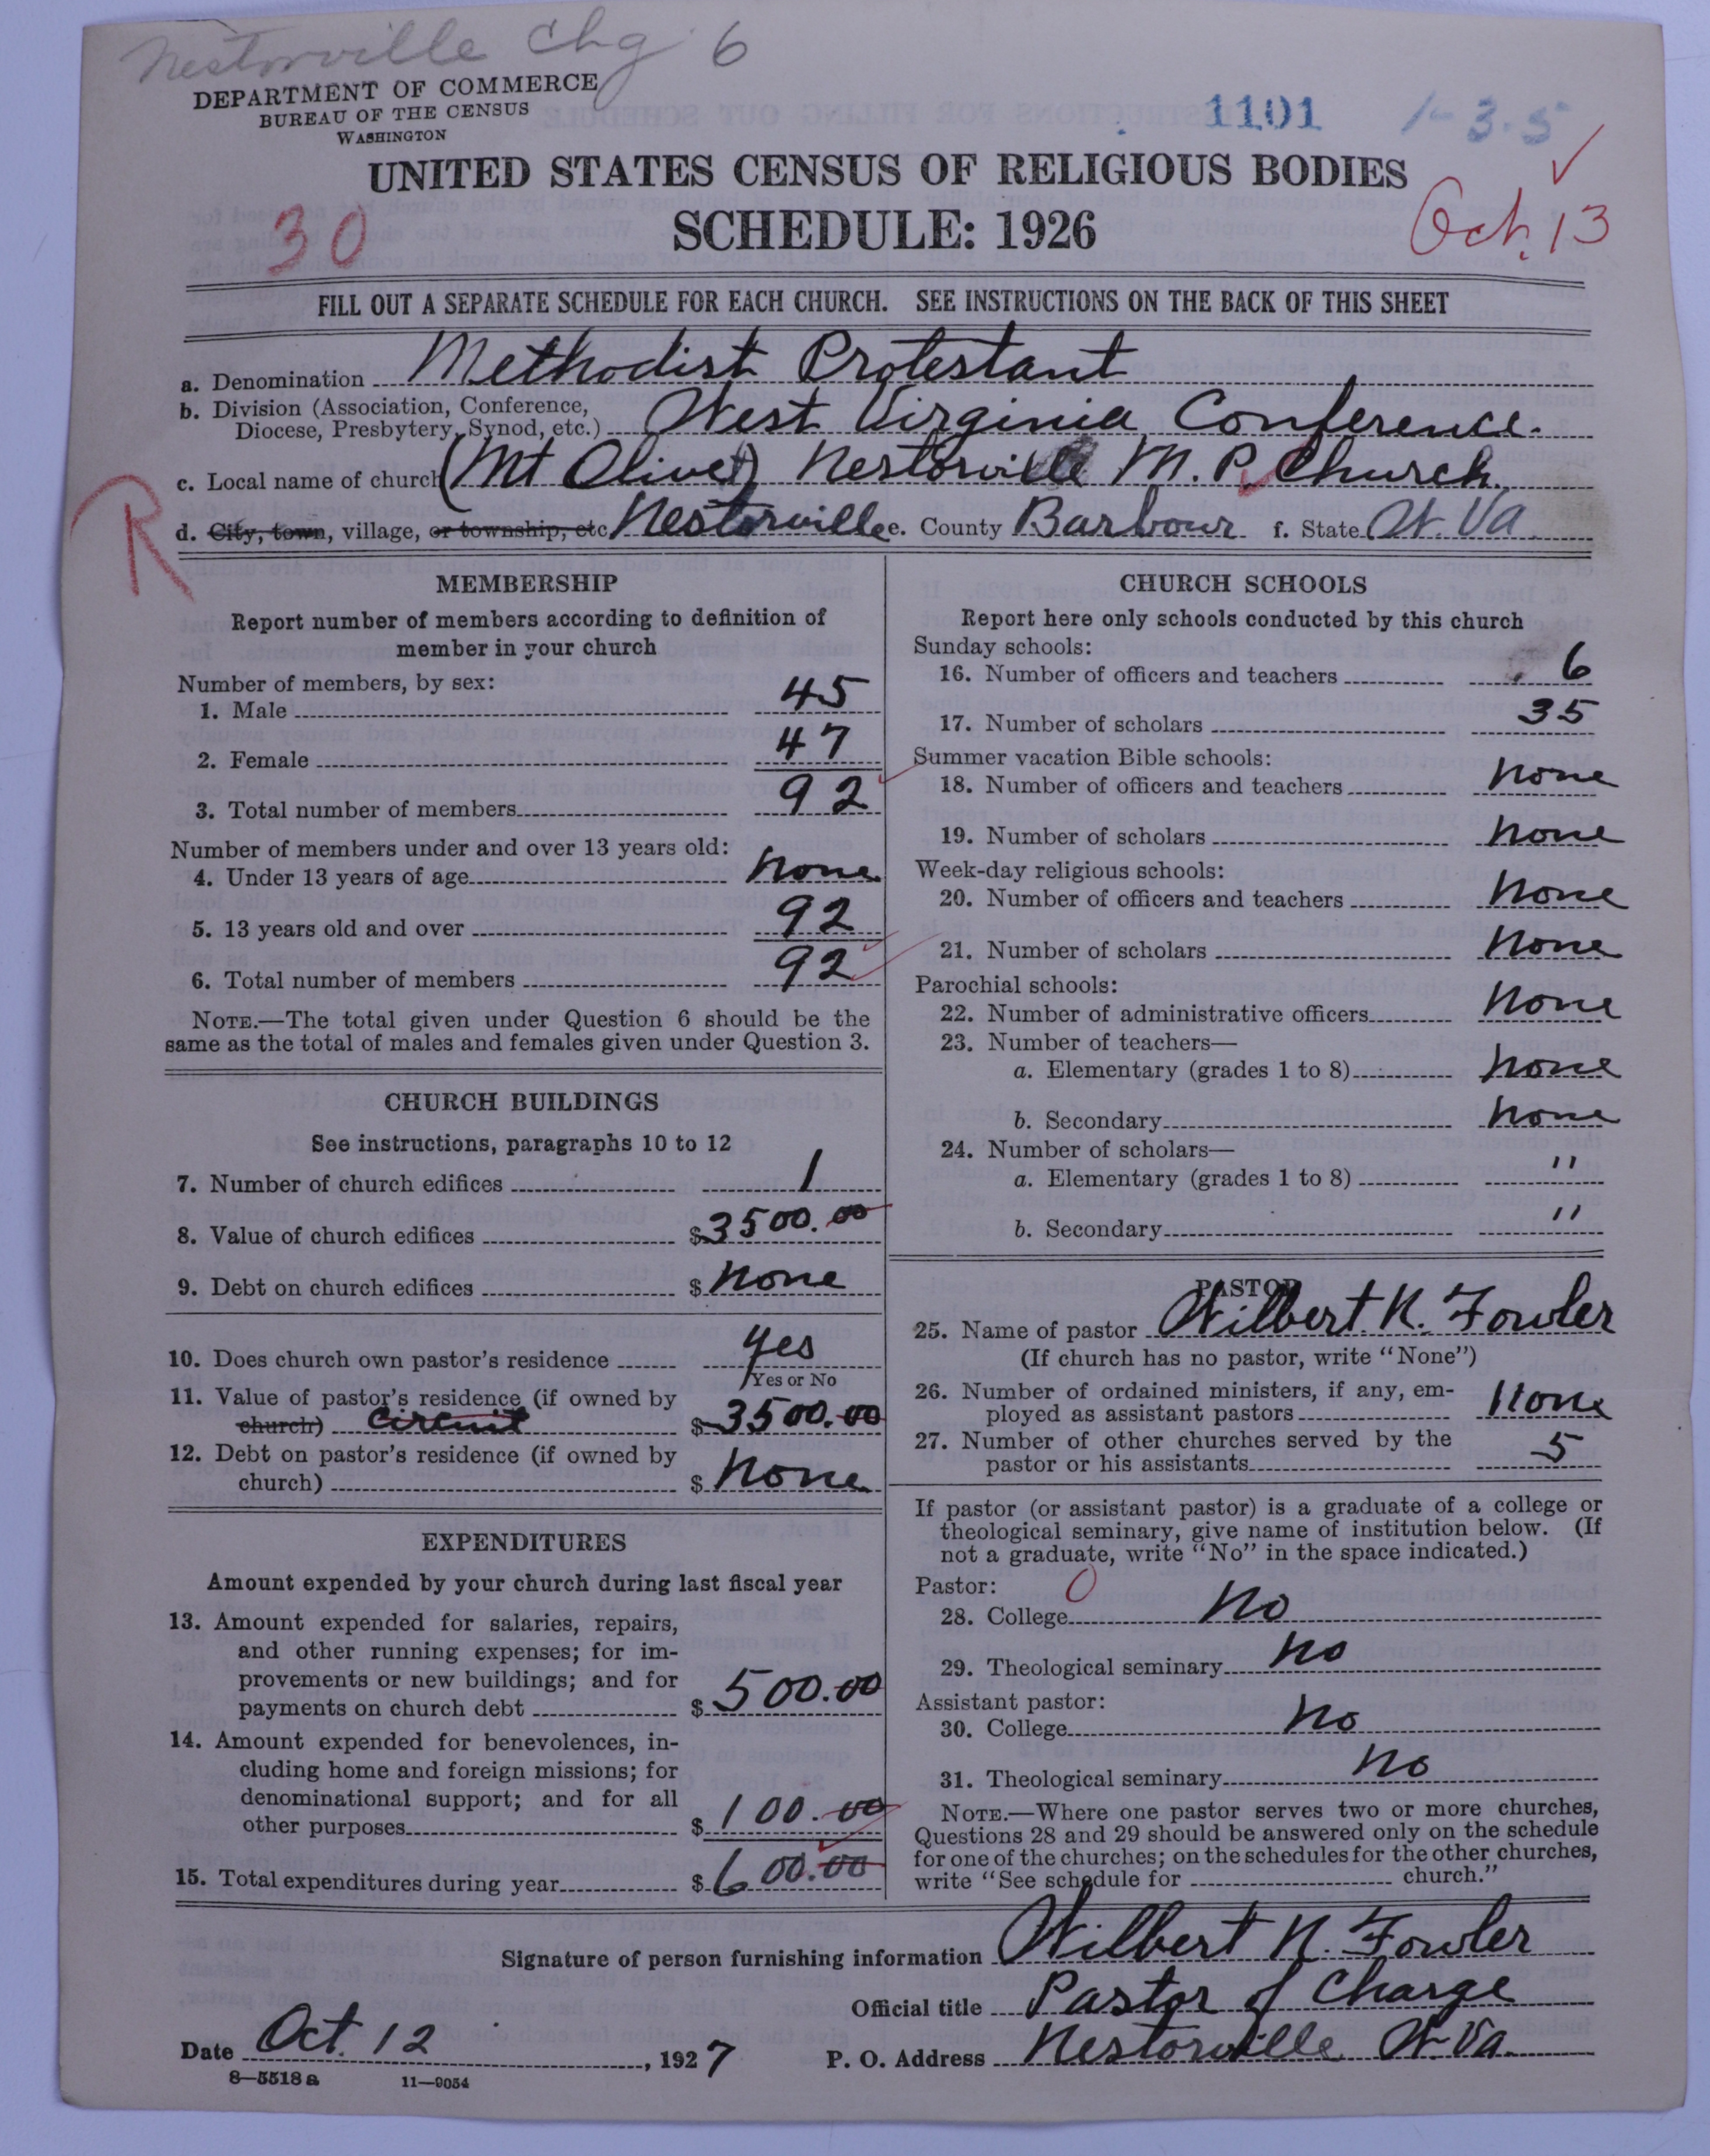 Nestorville Chg 6
DEPARTMENT OF COMMERCE
BUREAU OF THE CENSUS
WASHINGTON
1101
1-3-5
UNITED STATES CENSUS OF RELIGIOUS BODIES
SCHEDULE: 1926
30
Oct. 13
FILL OUT A SEPARATE SCHEDULE FOR EACH CHURCH. SEE INSTRUCTIONS ON THE BACK OF THIS SHEET
a. Denomination Methodist Protestant
b. Division (Association, Conference,
Diocese, Presbytery, Synod, etc.) West Virginia Conference.
c. Local name of church (Mt Olivet) Nestorville M. P. Church
R
d. City, town, village, or township, etc Nestorville e. County Barbour f. State W. Va
MEMBERSHIP
Report number of members according to definition of
member in your church
Number of members, by sex:
1. Male 45
2. Female 47
3. Total number of members 92
Number of members under and over 13 years old:
4. Under 13 years of age None
5. 13 years old and over 92
6. Total number of members 92
NOTE.—The total given under Question 6 should be the
same as the total of males and females given under Question 3.
CHURCH BUILDINGS
See instructions, paragraphs 10 to 12
7. Number of church edifices 1
8. Value of church edifices $3500.00
9. Debt on church edifices $ None
10. Does church own pastor's residence yes
Yes or No
11. Value of pastor's residence (if owned by
church) circuit $3500.00
12. Debt on pastor's residence (if owned by
church) $ None
EXPENDITURES
Amount expended by your church during last fiscal year
13. Amount expended for salaries, repairs,
and other running expenses; for im-
provements or new buildings; and for
payments on church debt $ 500.00
14. Amount expended for benevolences, in-
cluding home and foreign missions; for
denominational support; and for all
other purposes $ 100.00
15. Total expenditures during year $ 600.00
CHURCH SCHOOLS
Report here only schools conducted by this church
Sunday schools:
16. Number of officers and teachers 6
17. Number of scholars 35
Summer vacation Bible schools:
18. Number of officers and teachers None
19. Number of scholars None
Week-day religious schools:
20. Number of officers and teachers None
21. Number of scholars None
Parochial schools:
22. Number of administrative officers None
23. Number of teachers—
a. Elementary (grades 1 to 8) None
b. Secondary None
24. Number of scholars—
a. Elementary (grades 1 to 8) "
b. Secondary "
PASTOR
25. Name of pastor Wilbert. N. Fowler
(If church has no pastor, write "None")
26. Number of ordained ministers, if any, em-
ployed as assistant pastors None
27. Number of other churches served by the
pastor or his assistants 5
If pastor (or assistant pastor) is a graduate of a college or
theological seminary, give name of institution below. (If
not a graduate, write "No" in the space indicated.)
Pastor: 0
28. College No
29. Theological seminary No
Assistant pastor:
30. College No
31. Theological seminary No
NOTE.—Where one pastor serves two or more churches,
Questions 28 and 29 should be answered only on the schedule
for one of the churches; on the schedules for the other churches,
write "See schedule for church."
Signature of person furnishing information Wilbert N. Fowler
Official title Pastor of Charge
Date Oct. 12, 1927 P. O. Address Nestorville W. Va.
8—5518a 11—9054